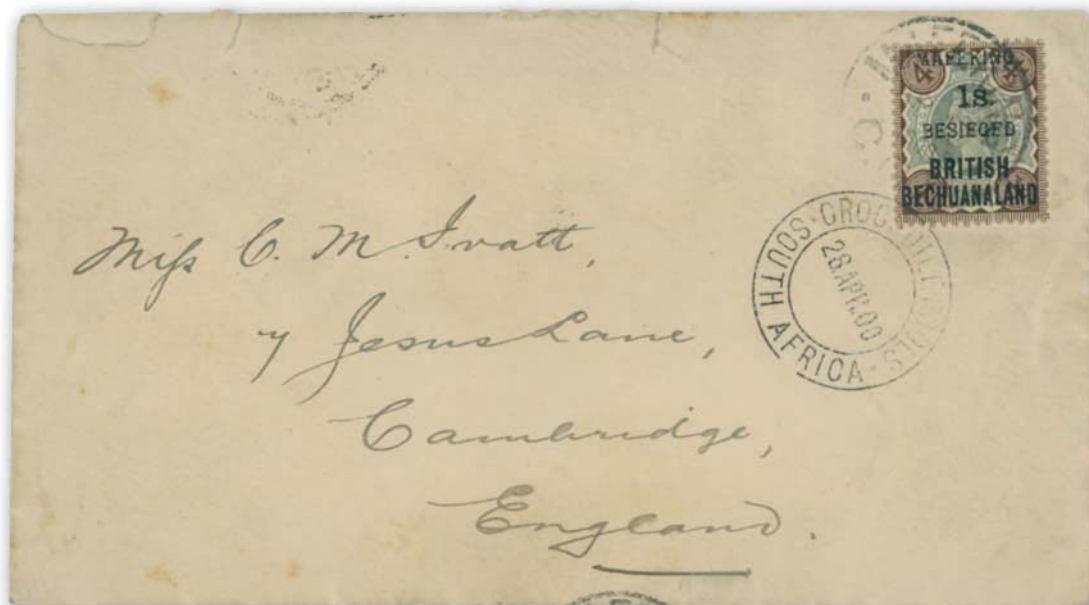 MAFEKING
1s.
BESIEGED
BRITISH
BECHUANALAND
SOUTH AFRICA
Miss C. M. Ivatt,
7 Jesus Lane,
Cambridge,
England.